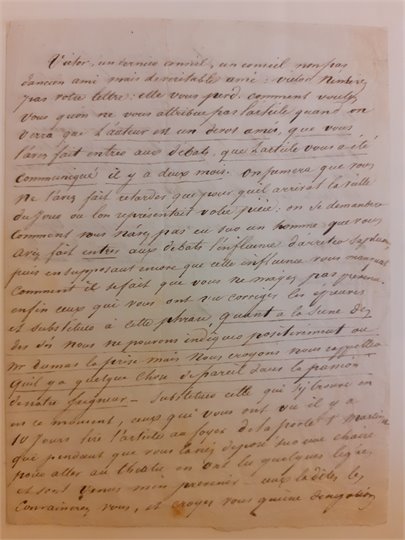 Victor, un dernier conseil, un conseil non pas
d'ancien ami mais de véritable ami : victor n'envoyez
pas votre lettre : elle vous perd. comment voulez
vous qu'on ne vous attribue pas l'article quand on
verra que l'auteur est un de vos amis, que vous
l'avez fait entrer aux debats, que l'article vous a été
communiqué il y a deux mois. on pensera que vous
ne l'avez fait retarder que pour qu'il arrivat la veille
du jour où l'on représentait votre pièce. on se demandera
comment vous n'avez pas eu sur un homme que vous
avez fait entrer aux debats l'influence d'arreter sa plume
puis en supposant encore que cette influence vous manquait
comment il se fait que vous ne m'ayez pas prévenu.
enfin ceux qui vous ont vu corriger les épreuves
et substituer à cette phrase, quant à la scene
des dés nous ne pouvons indiquer positivement où
Mr dumas l'a prise mais nous croyons nous rappeller
qu'il y a quelque chose de pareil dans la passion
de notre seigneur - substituer celle qui s'y trouve en
en ce moment, ceux qui vous ont vu il y a
10 jours lire l'article au foyer de la porte St Martin
que pendant que vous l'aviez déposé sur une chaise
pour aller au théatre on en a lu quelques lignes
et sont venus m'en prévenir -
convaincrez vous, et croyez vous